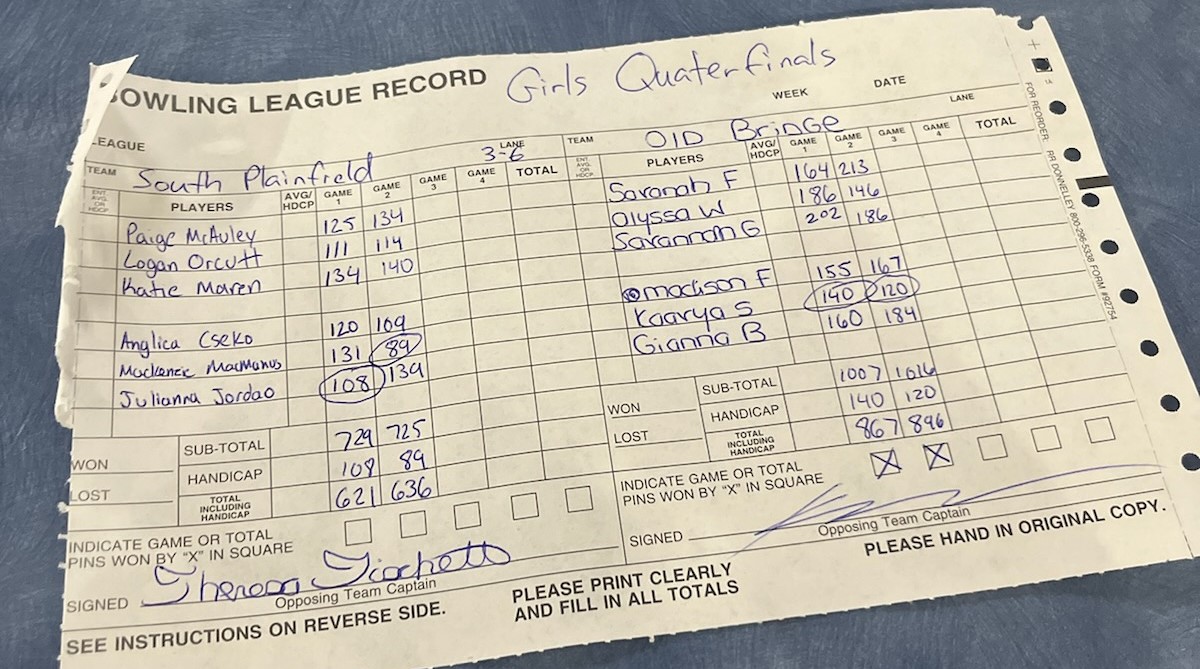 BOWLING LEAGUE RECORD Girls Quaterfinals
WEEK DATE
LEAGUE LANE 3-6
TEAM South Plainfield
ENT. AVG. OR HDCP PLAYERS AVG/HDCP GAME 1 GAME 2 GAME 3 GAME 4 TOTAL
Paige McAuley 125 134
Logan Orcutt 111 114
Katie Maren 134 140
Anglica Cseko 120 109
Mackenzie MacManus 131 89
Julianna Jordao 108 139
SUB-TOTAL 729 725
WON HANDICAP 108 89
LOST TOTAL INCLUDING HANDICAP 621 636
INDICATE GAME OR TOTAL
PINS WON BY "X" IN SQUARE
SIGNED Theresa
Opposing Team Captain
SEE INSTRUCTIONS ON REVERSE SIDE.
PLEASE PRINT CLEARLY
AND FILL IN ALL TOTALS
LANE
TEAM OlD BrinGe
ENT. AVG. OR HDCP PLAYERS AVG/HDCP GAME 1 GAME 2 GAME 3 GAME 4 TOTAL
Savanah F 164 213
Alyssa W 186 146
Savannah G 202 186
madison F 155 167
Kaarya S 140 120
Gianna B 160 184
SUB-TOTAL 1007 1016
WON HANDICAP 140 120
LOST TOTAL INCLUDING HANDICAP 867 896
INDICATE GAME OR TOTAL
PINS WON BY "X" IN SQUARE X X
SIGNED
Opposing Team Captain
PLEASE HAND IN ORIGINAL COPY.
1A
FOR REORDER: RR DONNELLEY 800-296-5338 FORM #92754